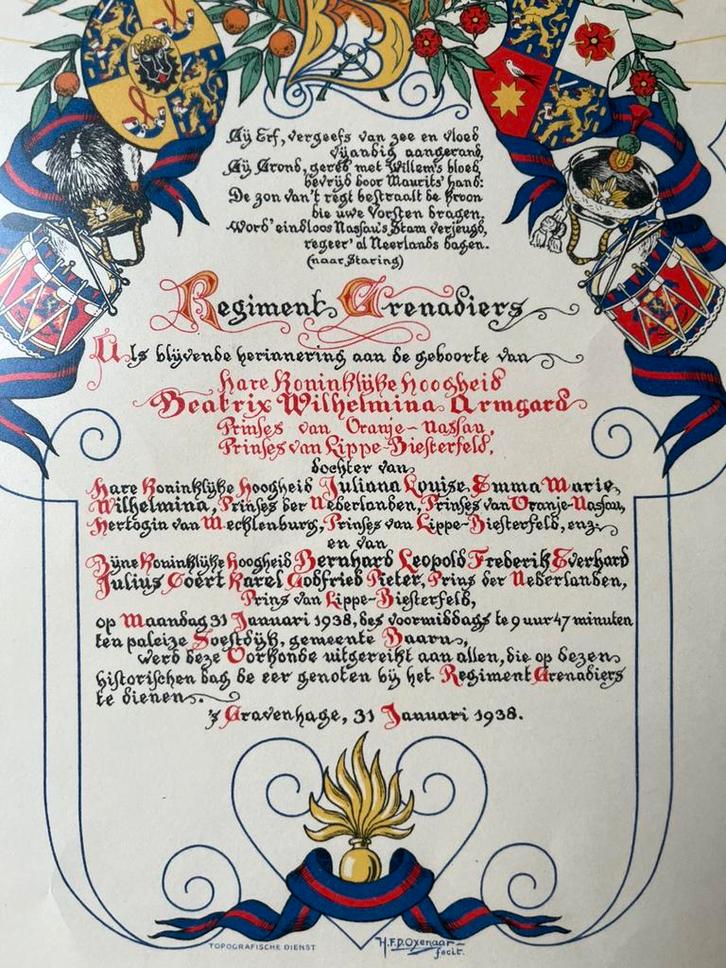 Gij Erf, vergeefs van zee en vloed
vijandig aangerand,
Gij Grond, gered met Willem's bloed
bevrijd door Maurits' hand:
De zon van't regt bestraalt de kroon
die uwe Vorsten dragen.
Word' eindloos Nassau's Stam verjeugd,
regeer' al Neerlands dagen.
(naar Staring)
Regiment Grenadiers
Als blijvende herinnering aan de geboorte van
Hare Koninklijke Hoogheid
Beatrix Wilhelmina Armgard
Prinses van Oranje-Nassau,
Prinses van Lippe-Biesterfeld,
dochter van
Hare Koninklijke Hoogheid Juliana Louise Emma Marie
Wilhelmina, Prinses der Nederlanden, Prinses van Oranje-Nassau,
Hertogin van Mecklenburg, Prinses van Lippe-Biesterfeld, enz.
en van
Zijne Koninklijke Hoogheid Bernhard Leopold Frederik Everhard
Julius Coert Karel Godfried Pieter, Prins der Nederlanden,
Prins van Lippe-Biesterfeld,
op Maandag 31 Januari 1938, des voormiddags te 9 uur 47 minuten
ten paleize Soestdijk, gemeente Baarn,
werd deze Oorkonde uitgereikt aan allen, die op dezen
historischen dag de eer genoten bij het Regiment Grenadiers
te dienen.
's Gravenhage, 31 Januari 1938.
TOPOGRAFISCHE DIENST
H.F.D.Oxenaar
fecit.